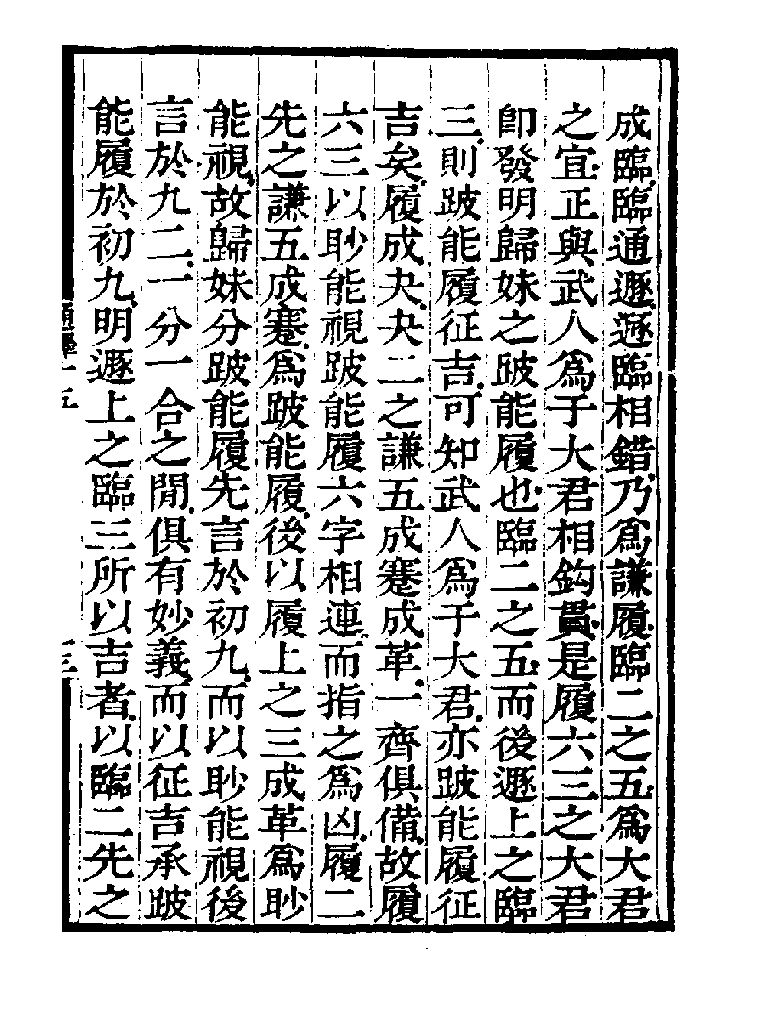 成臨臨通遯遯臨相錯乃爲謙履臨二之五爲大君
之宜正與武人爲于大君相鈎貫是履六三之大君
卽發明歸妹之跛能履也臨二之五而後遯上之臨
三則跛能履征吉可知武人爲于大君亦跛能履征
吉矣履成夬夬二之謙五成蹇成革一齊俱備故履
六三以眇能視跛能履六字相連而指之爲凶履二
先之謙五成蹇爲跛能履後以履上之三成革爲眇
能視故歸妹分跛能履先言於初九而以眇能視後
言於九二一分一合之閒俱有妙義而以征吉承跛
能履於初九明遯上之臨三所以吉者以臨二先之
通釋十五
三